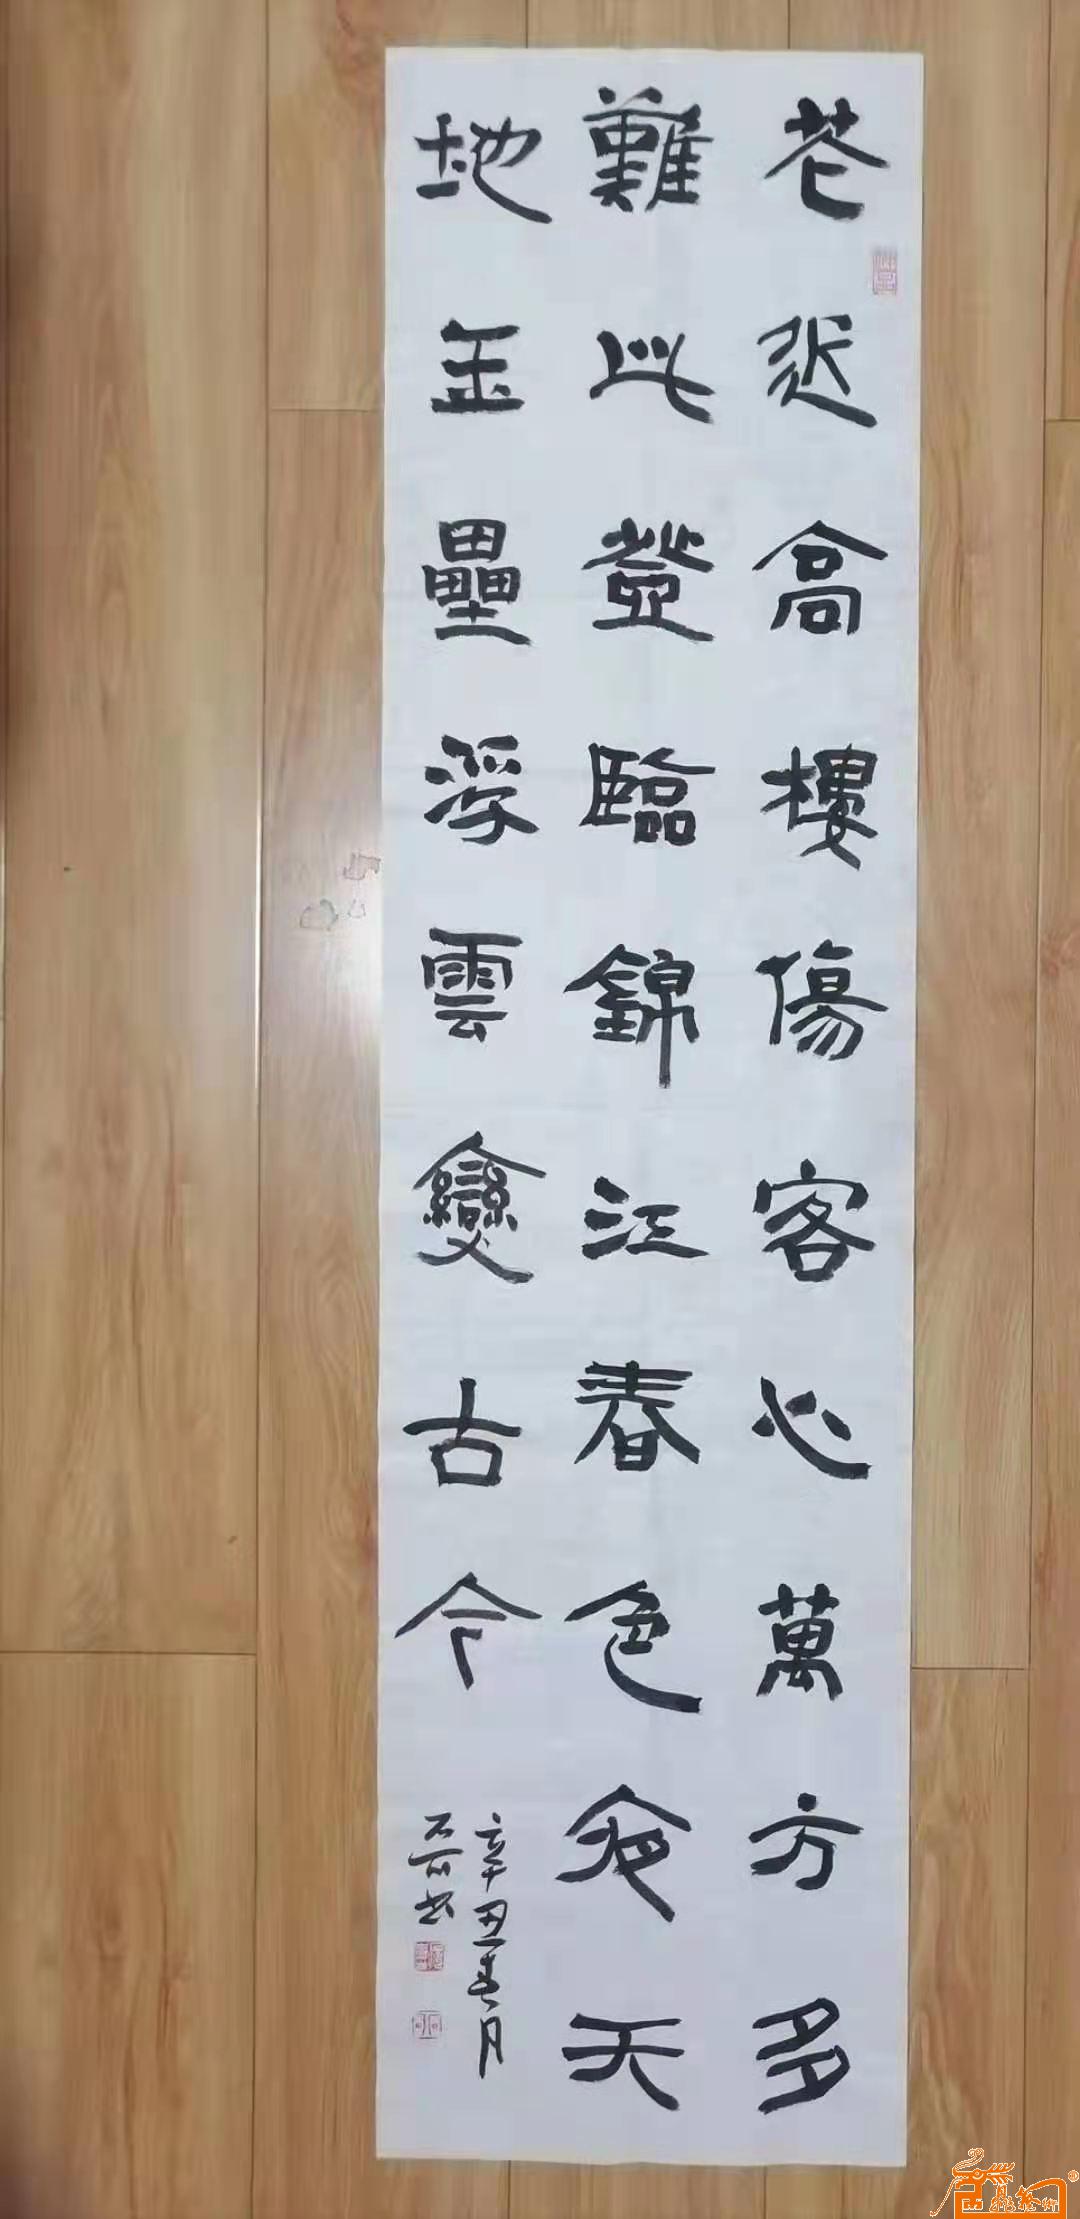 花近高樓傷客心萬方多
難此登臨錦江春色來天
地玉壘浮雲變古今
辛丑春月